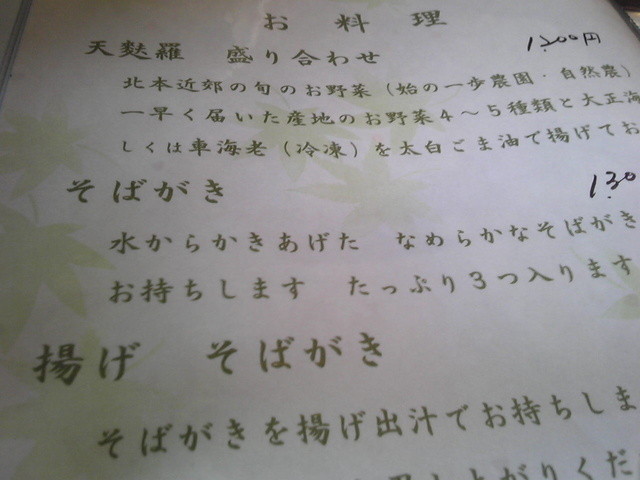 お料理
天麩羅 盛り合わせ 1200円
北本近郊の旬のお野菜(始の一歩農園・自然農)
一早く届いた産地のお野菜4〜5種類と大正海
しくは車海老(冷凍)を太白ごま油で揚げてお
そばがき 130
水からかきあげた なめらかなそばがき
お持ちします たっぷり3つ入ります
揚げ そばがき
そばがきを揚げ出汁でお持ちしま
上がりくだ